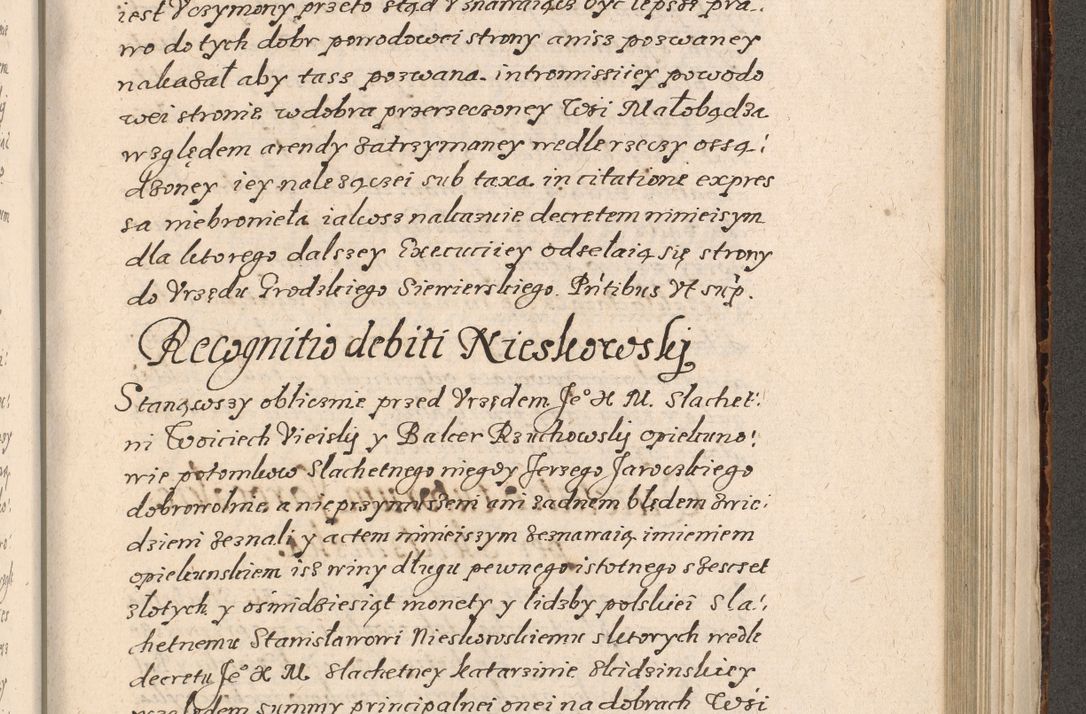 iest Vczymony przeto stąd Vznawaiącz być lepsze pra:
wo do tych dobr powodowei strony anisz pozwaney
nakazał aby tasz pozwana intromissiiey powodo
wei stronie w dobra przerzeczoney Wsi Małobądza
względem arendy zatrzymaney wedle rzeczy ossą:
dzoney iey należączei sub taxa in citatione expres
sa niebroniela iakosz nakazuie decretem ninieisym
dla ktorego dalszey Executiiey odsełaią się strony
do Vrzędu Grodzkiego Siewierskiego. Pntibus Vt sup.
Recognitio debiti Nieskowskij
Stanąwszy oblicznie przed Vrzędem Je° X M. Slachet:
ni Woiciech Vieiskij y Balcer Rzuchowskij opiekuno:
wie potomkow Slachetnego niegdy Jerzego Jaroczkiego
dobrowolnie a nieprzymuszeni ani zadnem błędem zwie:
dzieni zeznali y actem ninieiszym zeznawaią imieniem
opiekunskiem isz winy długu pewnego istotnego szesczet
złotych y ośmidziesiąt monety y lidzby polskiei Sla:
chetnemu Stanisławowi Nieskowskiemu s ktorych wedle
decretu Je° X M. Slachetney Katarzinie Skidzinskiey
względem summy principalnei onei na dobrach Wsi